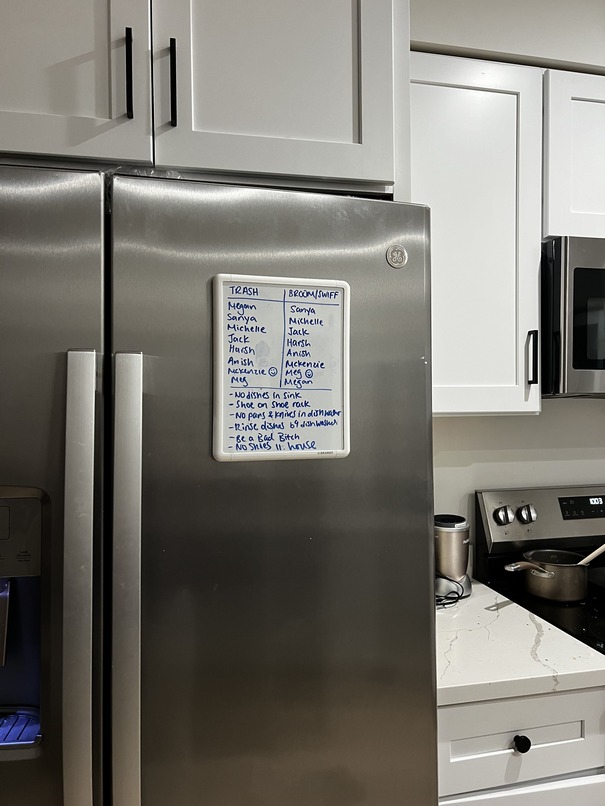 TRASH BROOM/SWIFF
Megan Sanya
Sanya Michelle
Michelle Jack
Jack Harsh
Harsh Anish
Anish Mckenzie
Mckenzie ☺ Meg ☺
Meg Megan
- No dishes in sink
- Shoe on shoe rack
- No pans & knives in dishwasher
- Rinse dishes b4 dishwasher
- Be a Bad Bitch
- NO SHOES house
GE